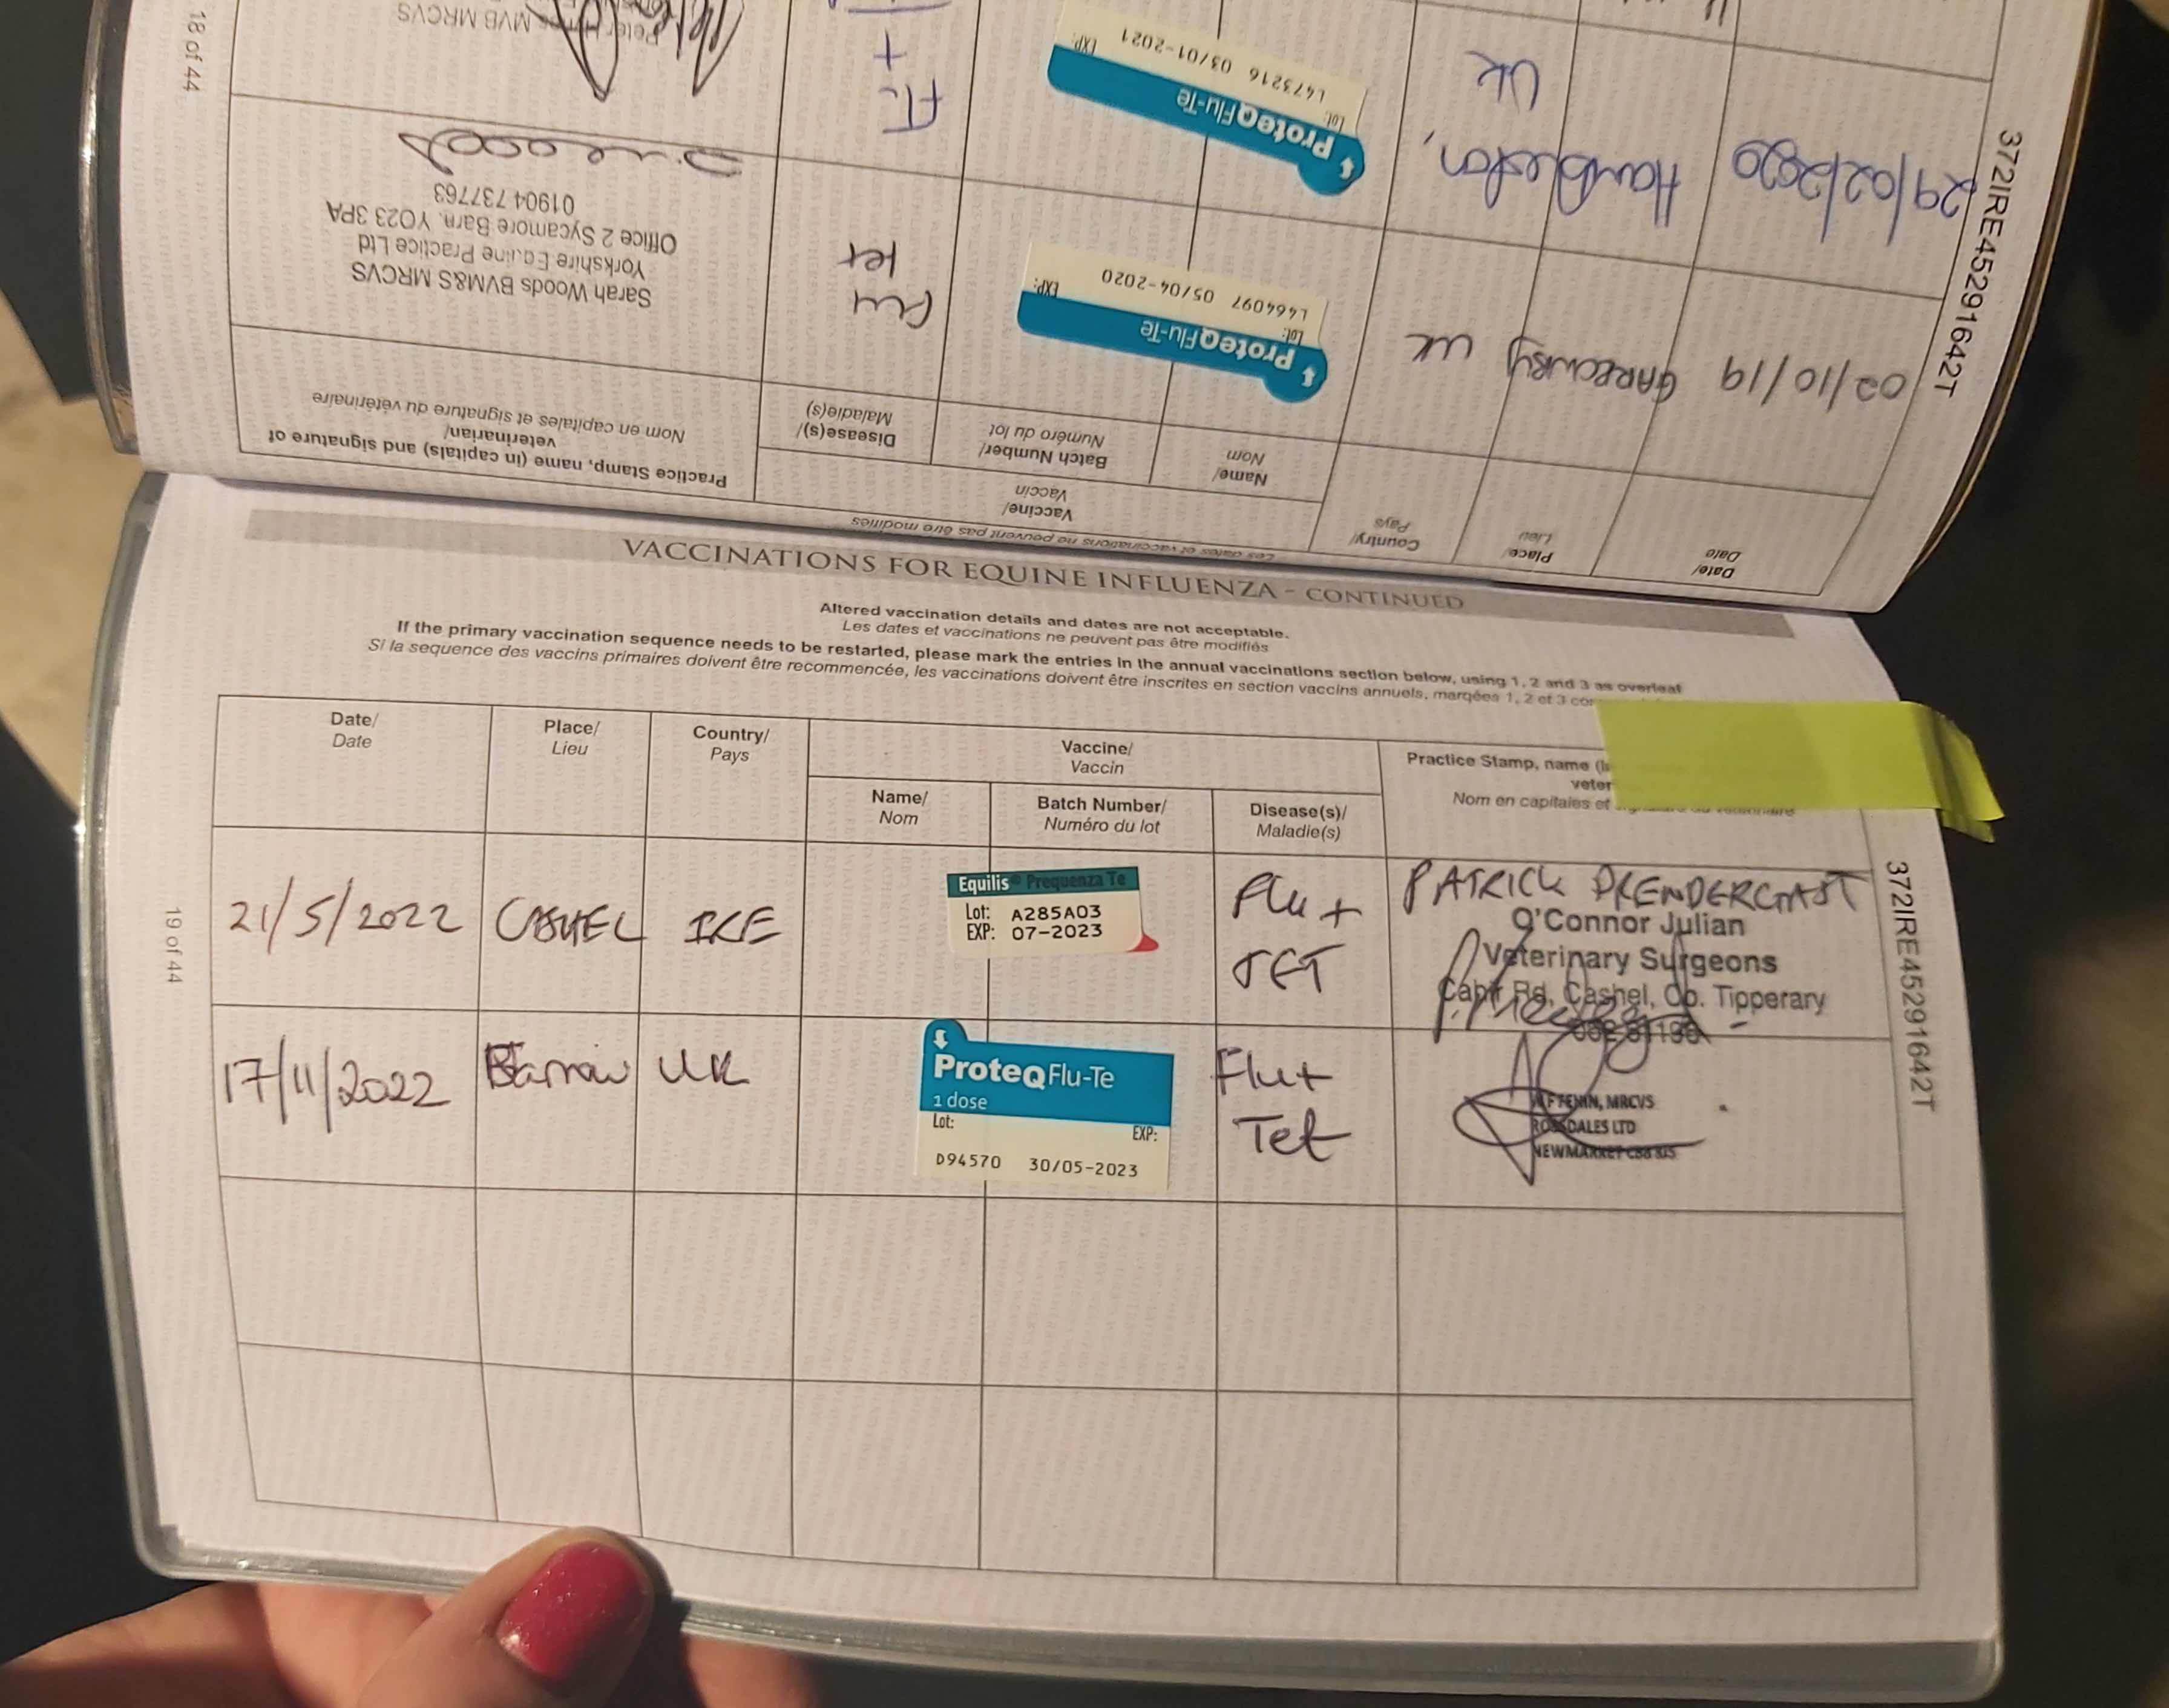 Peter MVB MRCVS
18 of 44
372IRE45291642T
Les dates et vaccinations ne peuvent pas être modifiés
Date/
Date
Place/
Lieu
Country/
Pays
Vaccine/
Vaccin
Name/
Nom
Batch Number/
Numéro du lot
Disease(s)/
Maladie(s)
Practice Stamp, name (in capitals) and signature of
veterinarian/
Nom en capitales et signature du vétérinaire
02/10/19 UK
ProteqFlu-Te
Lot: EXP:
L464097 05/04-2020
Flu
Tet
Sarah Woods BVM&S MRCVS
Yorkshire Equine Practice Ltd
Office 2 Sycamore Barn, YO23 3PA
01904 737763
29/02/2020 Hambleton,
UK
ProteqFlu-Te
Lot: EXP:
L473216 03/01-2021
+
VACCINATIONS FOR EQUINE INFLUENZA - CONTINUED
Altered vaccination details and dates are not acceptable.
Les dates et vaccinations ne peuvent pas être modifiés
If the primary vaccination sequence needs to be restarted, please mark the entries in the annual vaccinations section below, using 1, 2 and 3 as overleaf
Si la sequence des vaccins primaires doivent être recommencée, les vaccinations doivent être inscrites en section vaccins annuels, marqées 1, 2 et 3
Date/
Date
Place/
Lieu
Country/
Pays
Vaccine/
Vaccin
Name/
Nom
Batch Number/
Numéro du lot
Disease(s)/
Maladie(s)
Practice Stamp, name
Nom en capitales et
21/5/2022 CASHEL IRE
Equilis Prequenza Te
Lot: A285A03
EXP: 07-2023
Flu +
TET
PATRICK PRENDERGAST
O'Connor Julian
Veterinary Surgeons
Rd, Cashel, Co. Tipperary
17/11/2022 Barrow UK
ProteqFlu-Te
1 dose
Lot: EXP:
D94570 30/05-2023
Flu +
Tet
MRCVS
ROSSDALES LTD
NEWMARKET
19 of 44
372IRE45291642T